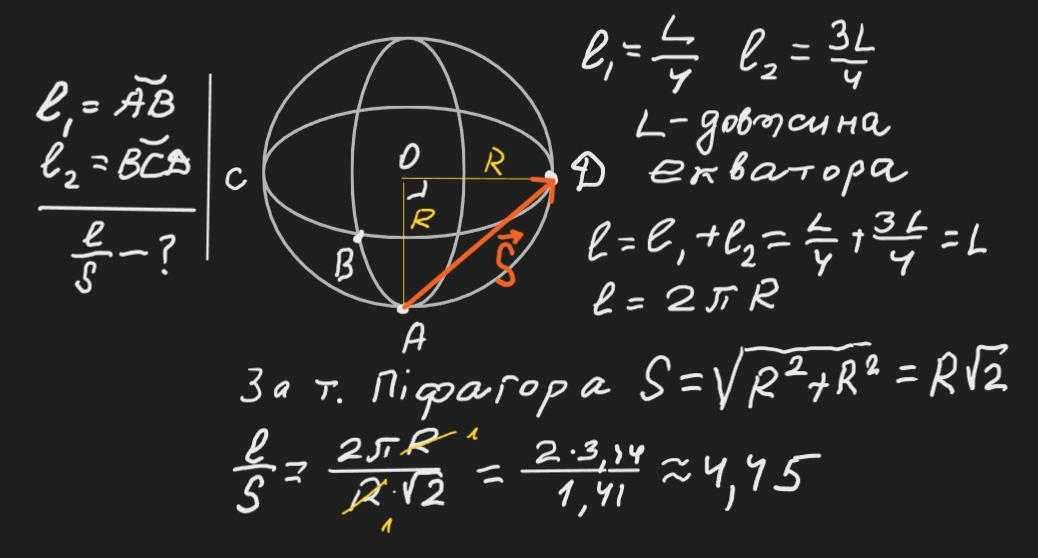 l₁ = ĂB
l₂ = BC͝D
l/S – ?
C
O
R
R
D
B
S⃗
A
l₁ = L/4   l₂ = 3L/4
L – довжина
екватора
l = l₁ + l₂ = L/4 + 3L/4 = L
l = 2πR
За т. Піфагора S = √(R² + R²) = R√2
l/S = 2πR/(R·√2) = 2·3,14/1,41 ≈ 4,45
1
1